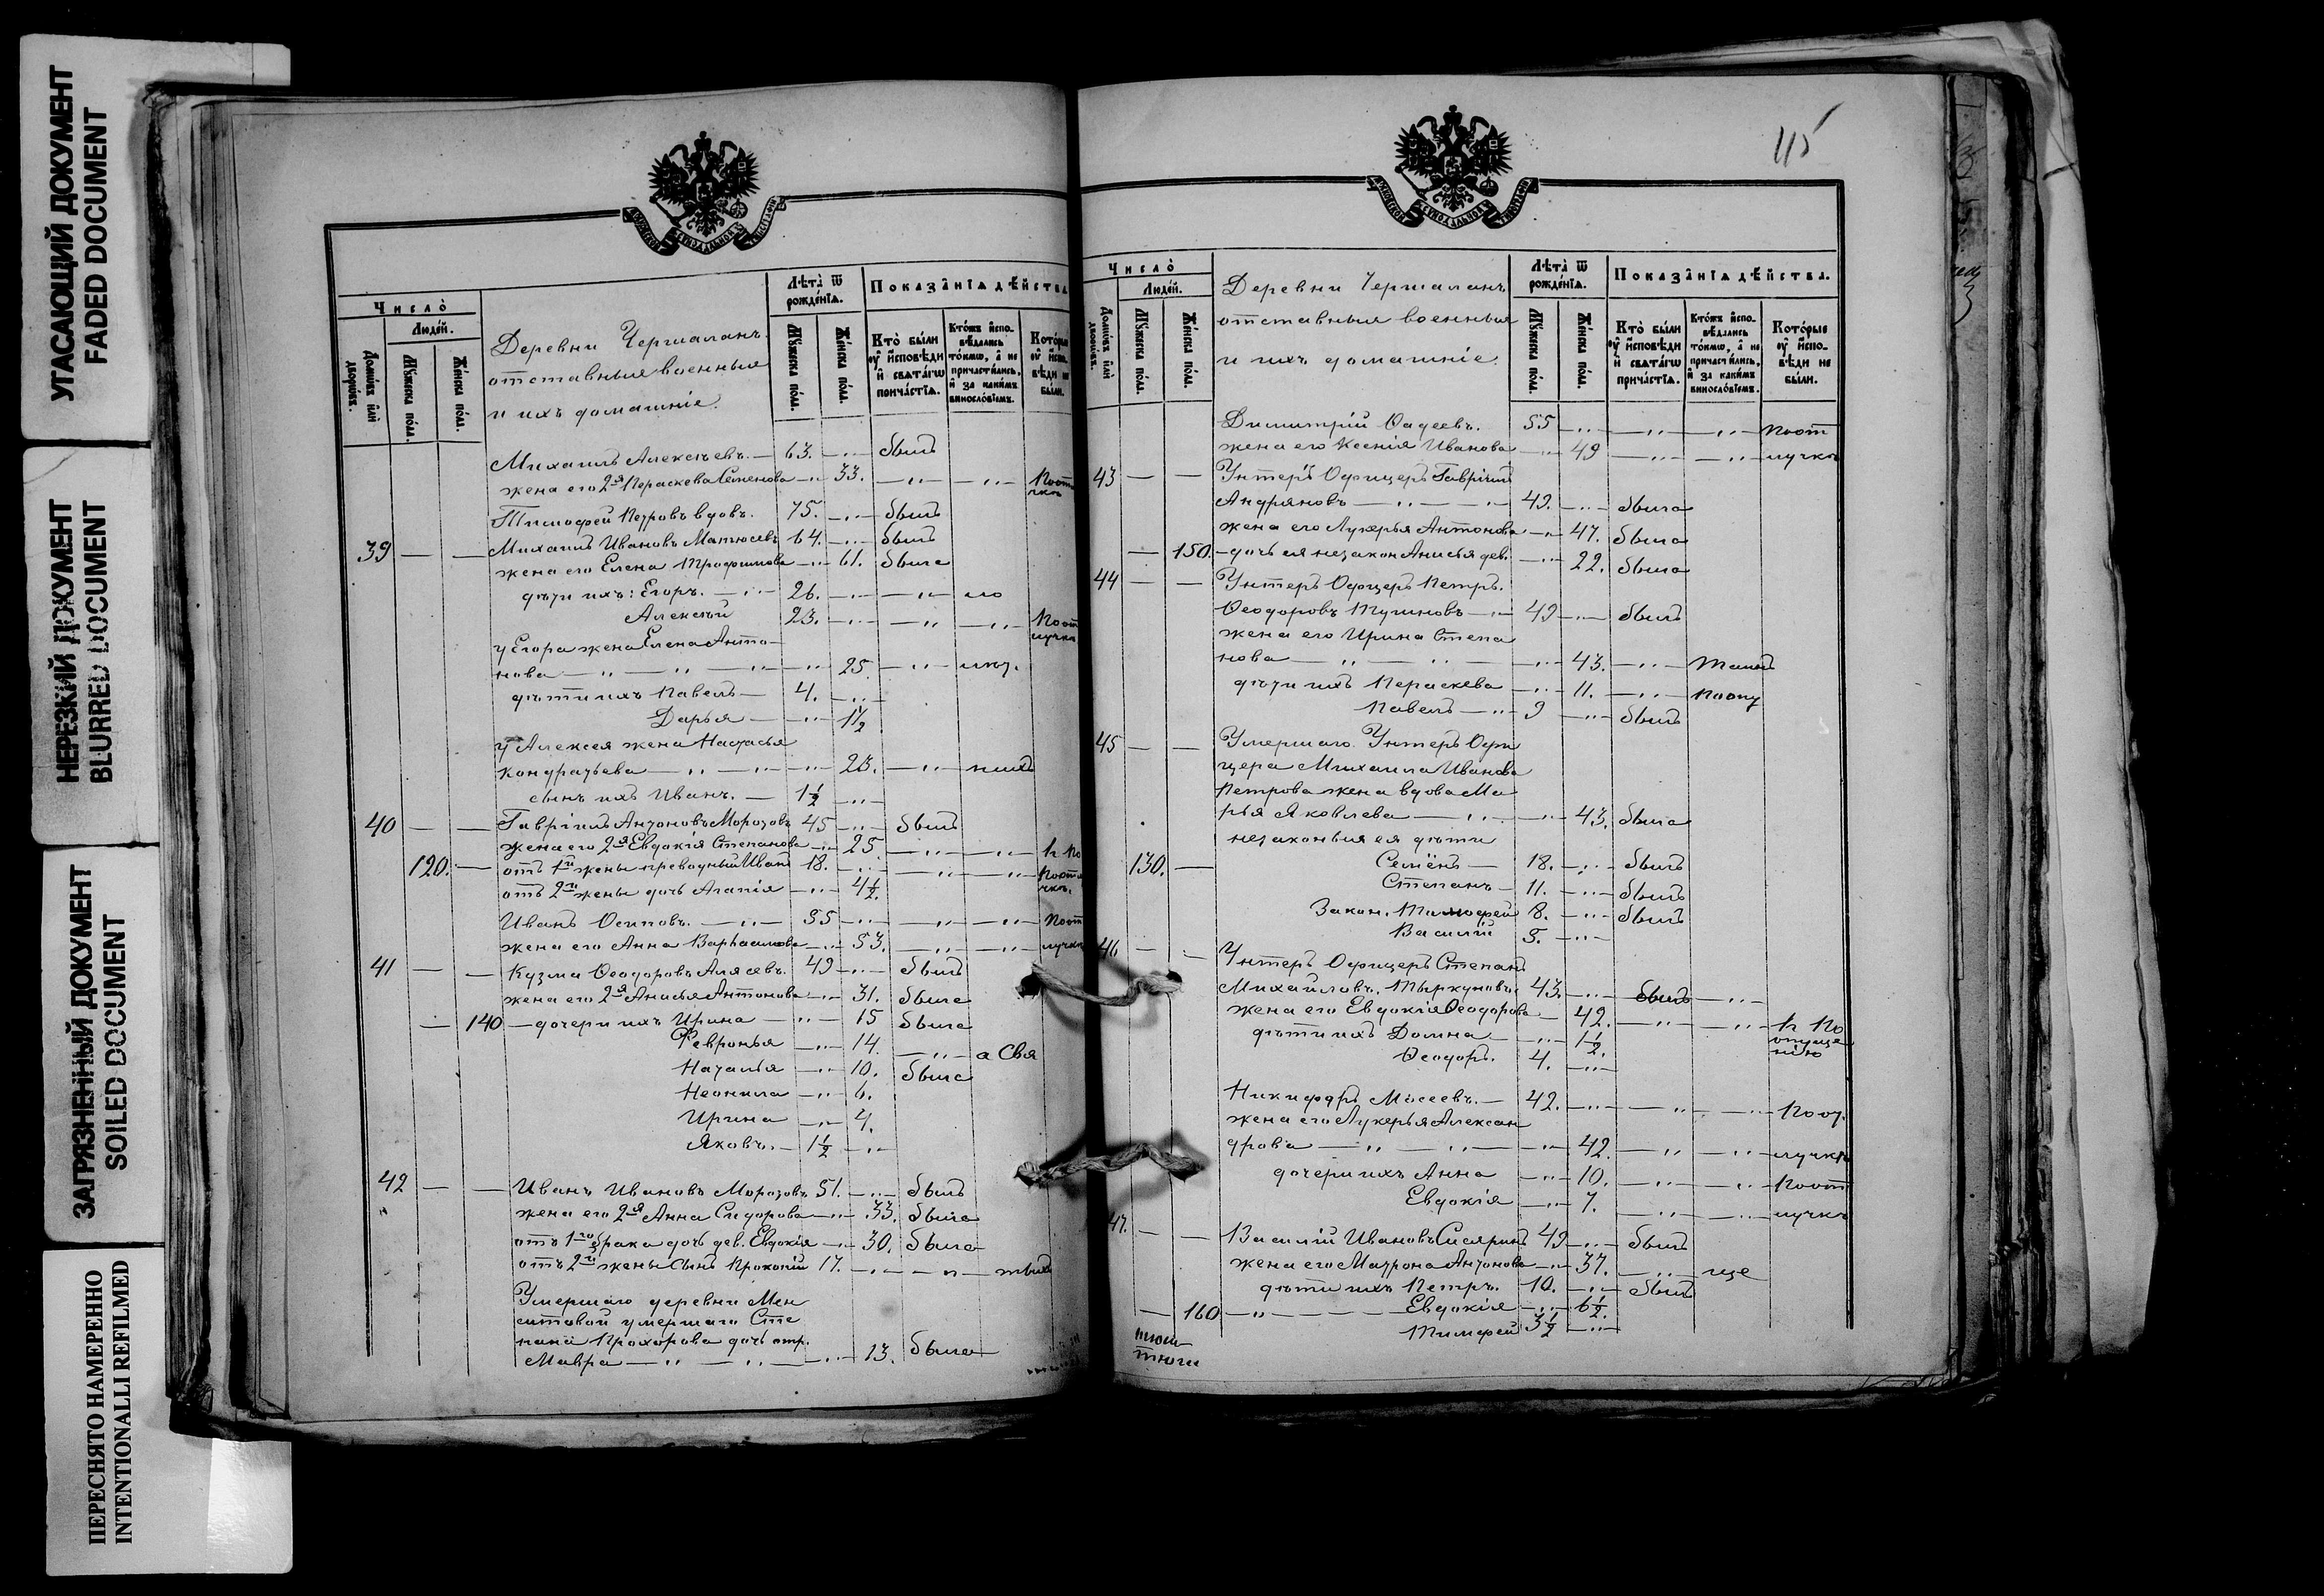 УГАСАЮЩИЙ ДОКУМЕНТ
FADED DOCUMENT
НЕРЕЗКИЙ ДОКУМЕНТ
BLURRED DOCUMENT
ЗАГРЯЗНЕННЫЙ ДОКУМЕНТ
SOILED DOCUMENT
ПЕРЕСНЯТО НАМЕРЕННО
INTENTIONALLI REFILMED
Число̀
Людей.
Домѡвъ илѝ дворѡвъ.
Мꙋжеска полꙋ.
Женска полꙋ.
Деревни Чершаланъ
отставныя военныя
и ихъ домашніе.
Лѣта̀ ѿ рожде́нїѧ.
Мꙋжеска полꙋ.
Женска полꙋ.
Показа̑нїѧ дѣ́йства
Кто̀ были ᲂу҆ и҆сповѣди и҆ свѧта́гѡ прича́стїѧ.
Кто́жъ и҆спо-вѣдались то́кмѡ, а҆ не причасти́лись, и҆ за каки́мъ винословїемъ.
Кото́рые ᲂу҆ и҆спо-вѣди не были.
Михаилъ Алексѣевъ. — 63. — „ — былъ
жена его 2я Параскева Семенова — „ — 33. — „ — — „ —
Тимофей Петровъ вдовъ. 75. — „ — былъ
39 — — Михаилъ Ивановъ Матюсевъ 64. — „ — былъ
жена его Елена Трофимова — „ — 61. была
дѣти ихъ: Егоръ. — „ — 26. — „ — — „ —
Алексѣй 23. — „ — — „ — — „ —
у Егора жена Елена Анто-
нова — „ — „ — „ — 25 — „ —
дѣти ихъ Павелъ — 4. — „ —
Дарья — — „ — 1½
у Алексея жена Настасья
Кондратьева — „ — „ — „ — 23. — „ —
сынъ ихъ Иванъ. — 1½ — „ —
40 — — Гавріилъ Антоновъ Морозовъ 45 — „ — былъ
жена его 2я Евдокія Степанова — „ — 25 — „ — — „ —
120. — отъ 1й жены Иванъ 18. — „ — — „ — — „ —
отъ 2й жены дочь Агапія — „ — 4½.
Иванъ Осиповъ. — „ — 55 — „ — — „ — — „ —
жена его Анна — „ — 53. — „ — — „ —
41 — — Кузма Ѳеодоровъ 49 — „ — былъ
жена его 2я Анисья Антонова — „ — 31. была
— 140 — дочери ихъ Ирина — — „ — 15 была
Февронья — „ — 14. — „ —
Наталья — „ — 10. была
Неонила — „ — 6.
Ирина — „ — 4.
Яковъ. — 1½ — „ —
42 — — Иванъ Ивановъ Морозовъ 51. — „ — былъ
жена его 2я Анна Сидорова — „ — 33. была
отъ 1го брака дочь дев. Евдокія — „ — 30. была
отъ 2й жены сынъ Прокопій 17. — „ — — „ —
Умершаго деревни Мен
ситовой умершаго Сте
пана Прохорова дочь
Мавра — „ — „ — „ — 13. была
115
Число̀
Людей.
Домѡвъ илѝ дворѡвъ.
Мꙋжеска полꙋ.
Женска полꙋ.
Деревни Чершаланъ
отставныя военныя
и ихъ домашніе.
Лѣта̀ ѿ рожде́нїѧ.
Мꙋжеска полꙋ.
Женска полꙋ.
Показа̑нїѧ дѣ́йства.
Кто̀ были ᲂу҆ и҆сповѣди и҆ свѧта́гѡ прича́стїѧ.
Кто́жъ и҆спо-вѣдались то́кмѡ, а҆ не причасти́лись, и҆ за каки́мъ винословїемъ.
Кото́рые ᲂу҆ и҆спо-вѣди не были.
Димитрій Фадеевъ. 55 — „ — — „ — — „ — по от
жена его Ксенія Иванова — „ — 49 — „ — — „ — лучкѣ
43 — — Унтеръ Офицеръ Гавріилъ
Андряновъ — „ — „ 49. — „ — была
жена его Лукерья Антонова — „ — 47. была
— 150 — дочь ея незакон Анисья дев. — „ — 22. была
44 — — Унтеръ Офицеръ Петръ
Ѳеодоровъ — „ — 49 — „ — былъ
жена его Ирина Степа
нова — „ — „ — — „ — 43. — „ —
дѣти ихъ Пераскева — „ — 11. — „ —
Павелъ — „ — 9 — „ — былъ
45 — — Умершаго Унтеръ Офи
цера Михаила Иванова
Петрова жена вдова Ма
рья Яковлева — „ — — „ — 43. была
незаконныя ея дѣти
130. — Семёнъ — 18. — „ — былъ
Степанъ — 11. — „ — былъ
Закон. Тимофей 8. — „ — былъ
Василій 5. — „ —
46 — — Унтеръ Офицеръ Степанъ
Михайловъ Тыркуновъ 43. — „ — былъ — „ —
жена его Евдокія Ѳеодорова — 42. — „ — — „ — по
дѣти ихъ Домна — — „ — 1½.
Ѳеодоръ. 4. — „ —
Никифоръ Мосеевъ. — 42. — „ — — „ — — „ — по от.
жена его Лукерья Алексан
дрова — „ — „ — — „ — 42. — „ — — „ — лучкѣ
дочери ихъ Анна — „ — 10. — „ — — „ — по от
Евдокія — „ — 7. — „ — — „ — лучкѣ
47. — — Василій Ивановъ 49 — „ — былъ
жена его Матрона Антонова — „ — 37. — „ —
дѣти ихъ Петръ. 10. — „ — былъ
— 160 — „ — Евдокія — „ — 6½.
Тимофей 3½ — „ —